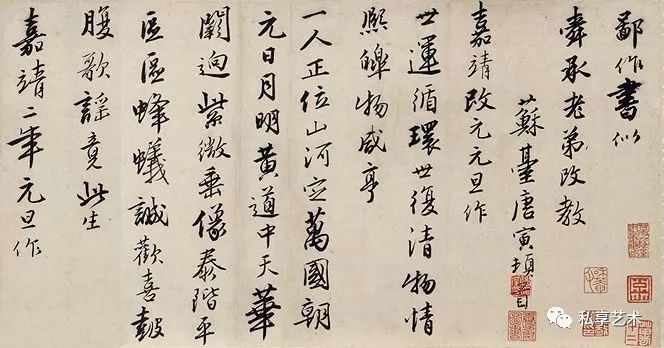 鄙作書似
舜承老弟改教
蘇臺唐寅頓首
嘉靖改元元旦作
世運循環世復清物情
熙皥物咸亨
一人正位山河定萬國朝
元日月明黃道中天華
闕迥紫微垂像泰階平
區區蜂蟻誠歡喜皷
腹歌謡竟此生
嘉靖二年元旦作
私享艺术